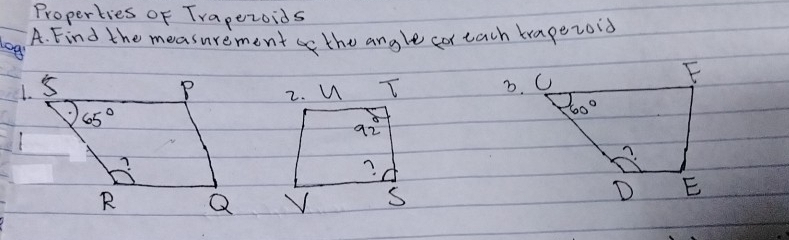 Properties of Trapezoids
A. Find the measurement of the angle for each trapezoid
1. S P 2. U T 3. C F
65° 92 60°
? ? ?
R Q V S D E